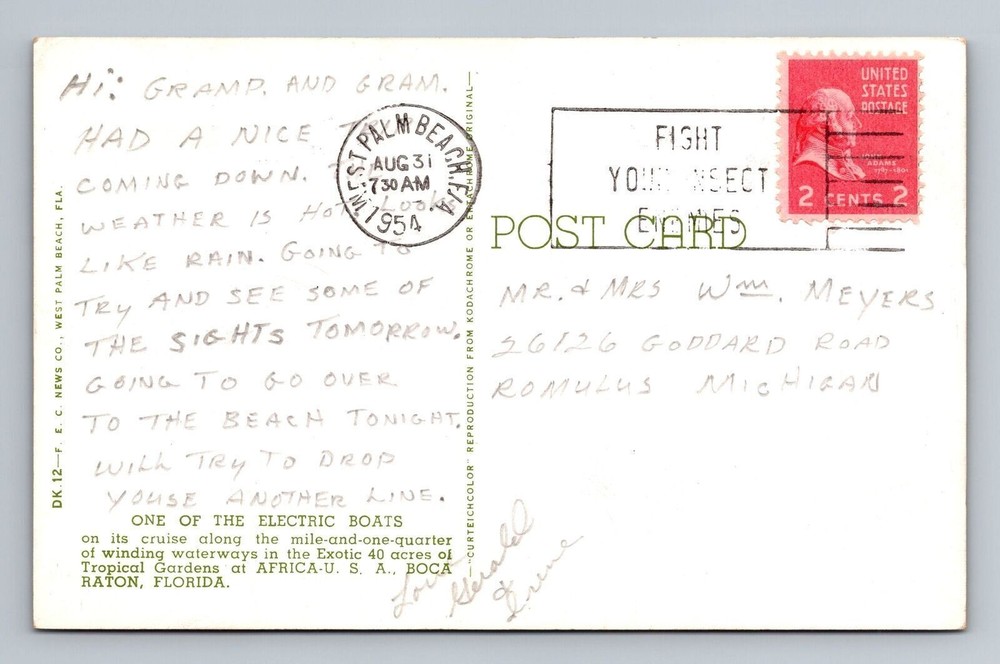 Hi: GRAMP. AND GRAM.
HAD A NICE
COMING DOWN.
WEATHER IS HOT. LOOKS
LIKE RAIN. GOING TO
TRY AND SEE SOME OF
THE SIGHTS TOMORROW.
GOING TO GO OVER
TO THE BEACH TONIGHT.
WILL TRY TO DROP
YOUSE ANOTHER LINE.
ONE OF THE ELECTRIC BOATS
on its cruise along the mile-and-one-quarter
of winding waterways in the Exotic 40 acres of
Tropical Gardens at AFRICA-U. S. A., BOCA
RATON, FLORIDA.
DK.12—F. E. C. NEWS CO., WEST PALM BEACH, FLA.
—"CURTEICHCOLOR" REPRODUCTION FROM KODACHROME OR EKTACHROME ORIGINAL—
WEST PALM BEACH, FLA
AUG 31
7 30 AM
1954
FIGHT
YOUR INSECT
ENEMIES
UNITED
STATES
POSTAGE
JOHN
ADAMS
1797-1801
2 CENTS 2
POST CARD
MR. & MRS Wm. MEYERS
26126 GODDARD ROAD
ROMULUS MICHIGAN
Love
Gerald
&
Irene